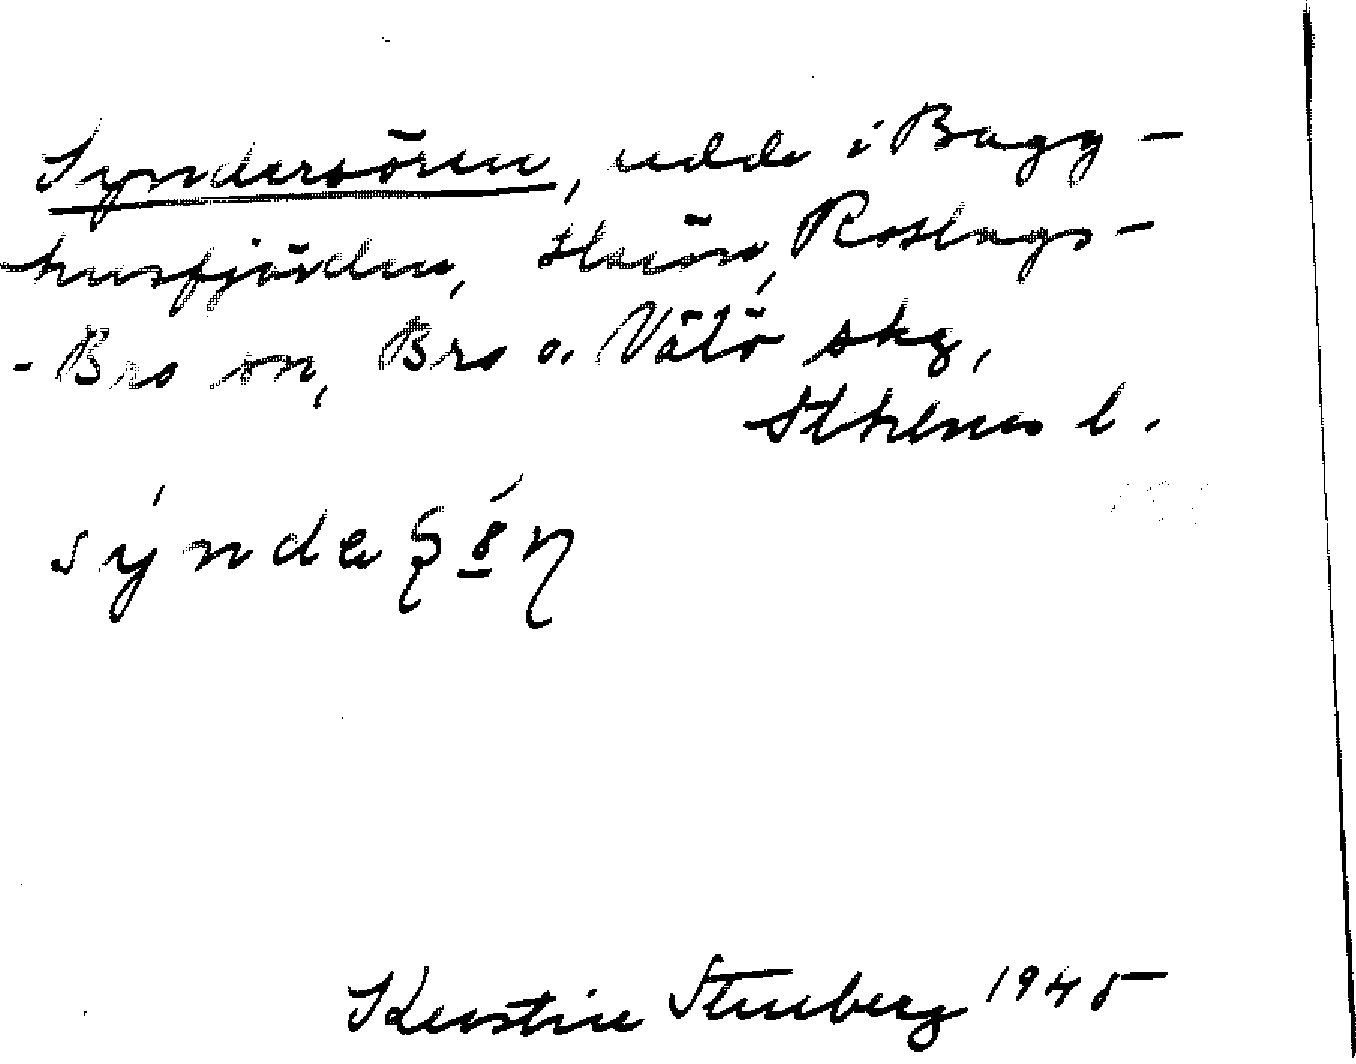 Syndersören, udde i Bagg-
husfjärden, Roslags-
-Bro sn, Bro o. Vätö skg,
Sthlms l.
Kerstin Stenberg 1945